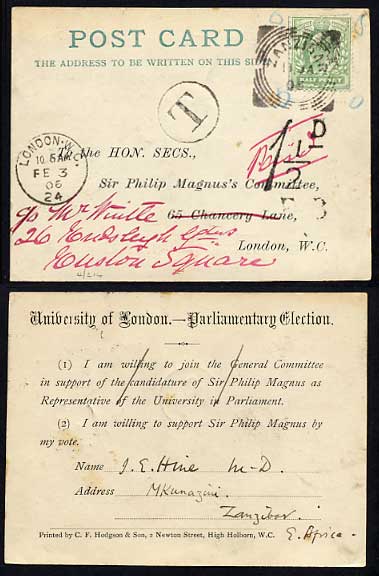 POST CARD
THE ADDRESS TO BE WRITTEN ON THIS SI
ZANZIBAR
JA
06
HALF PENNY
T
LONDON·W.C
10.15AM
FE 3
06
24
To the HON. SECS.,
Sir Philip Magnus's Committee,
c/o Mr Whittle 65 Chancery Lane,
26 Endsleigh Gdns London, W.C.
Euston Square
University of London.—Parliamentary Election.
(1) I am willing to join the General Committee
in support of the candidature of Sir Philip Magnus as
Representative of the University in Parliament.
(2) I am willing to support Sir Philip Magnus by
my vote.
Name J. E. Hine M-D.
Address Mkunazini.
Zanzibar.
Printed by C. F. Hodgson & Son, 2 Newton Street, High Holborn, W.C. E. Africa.